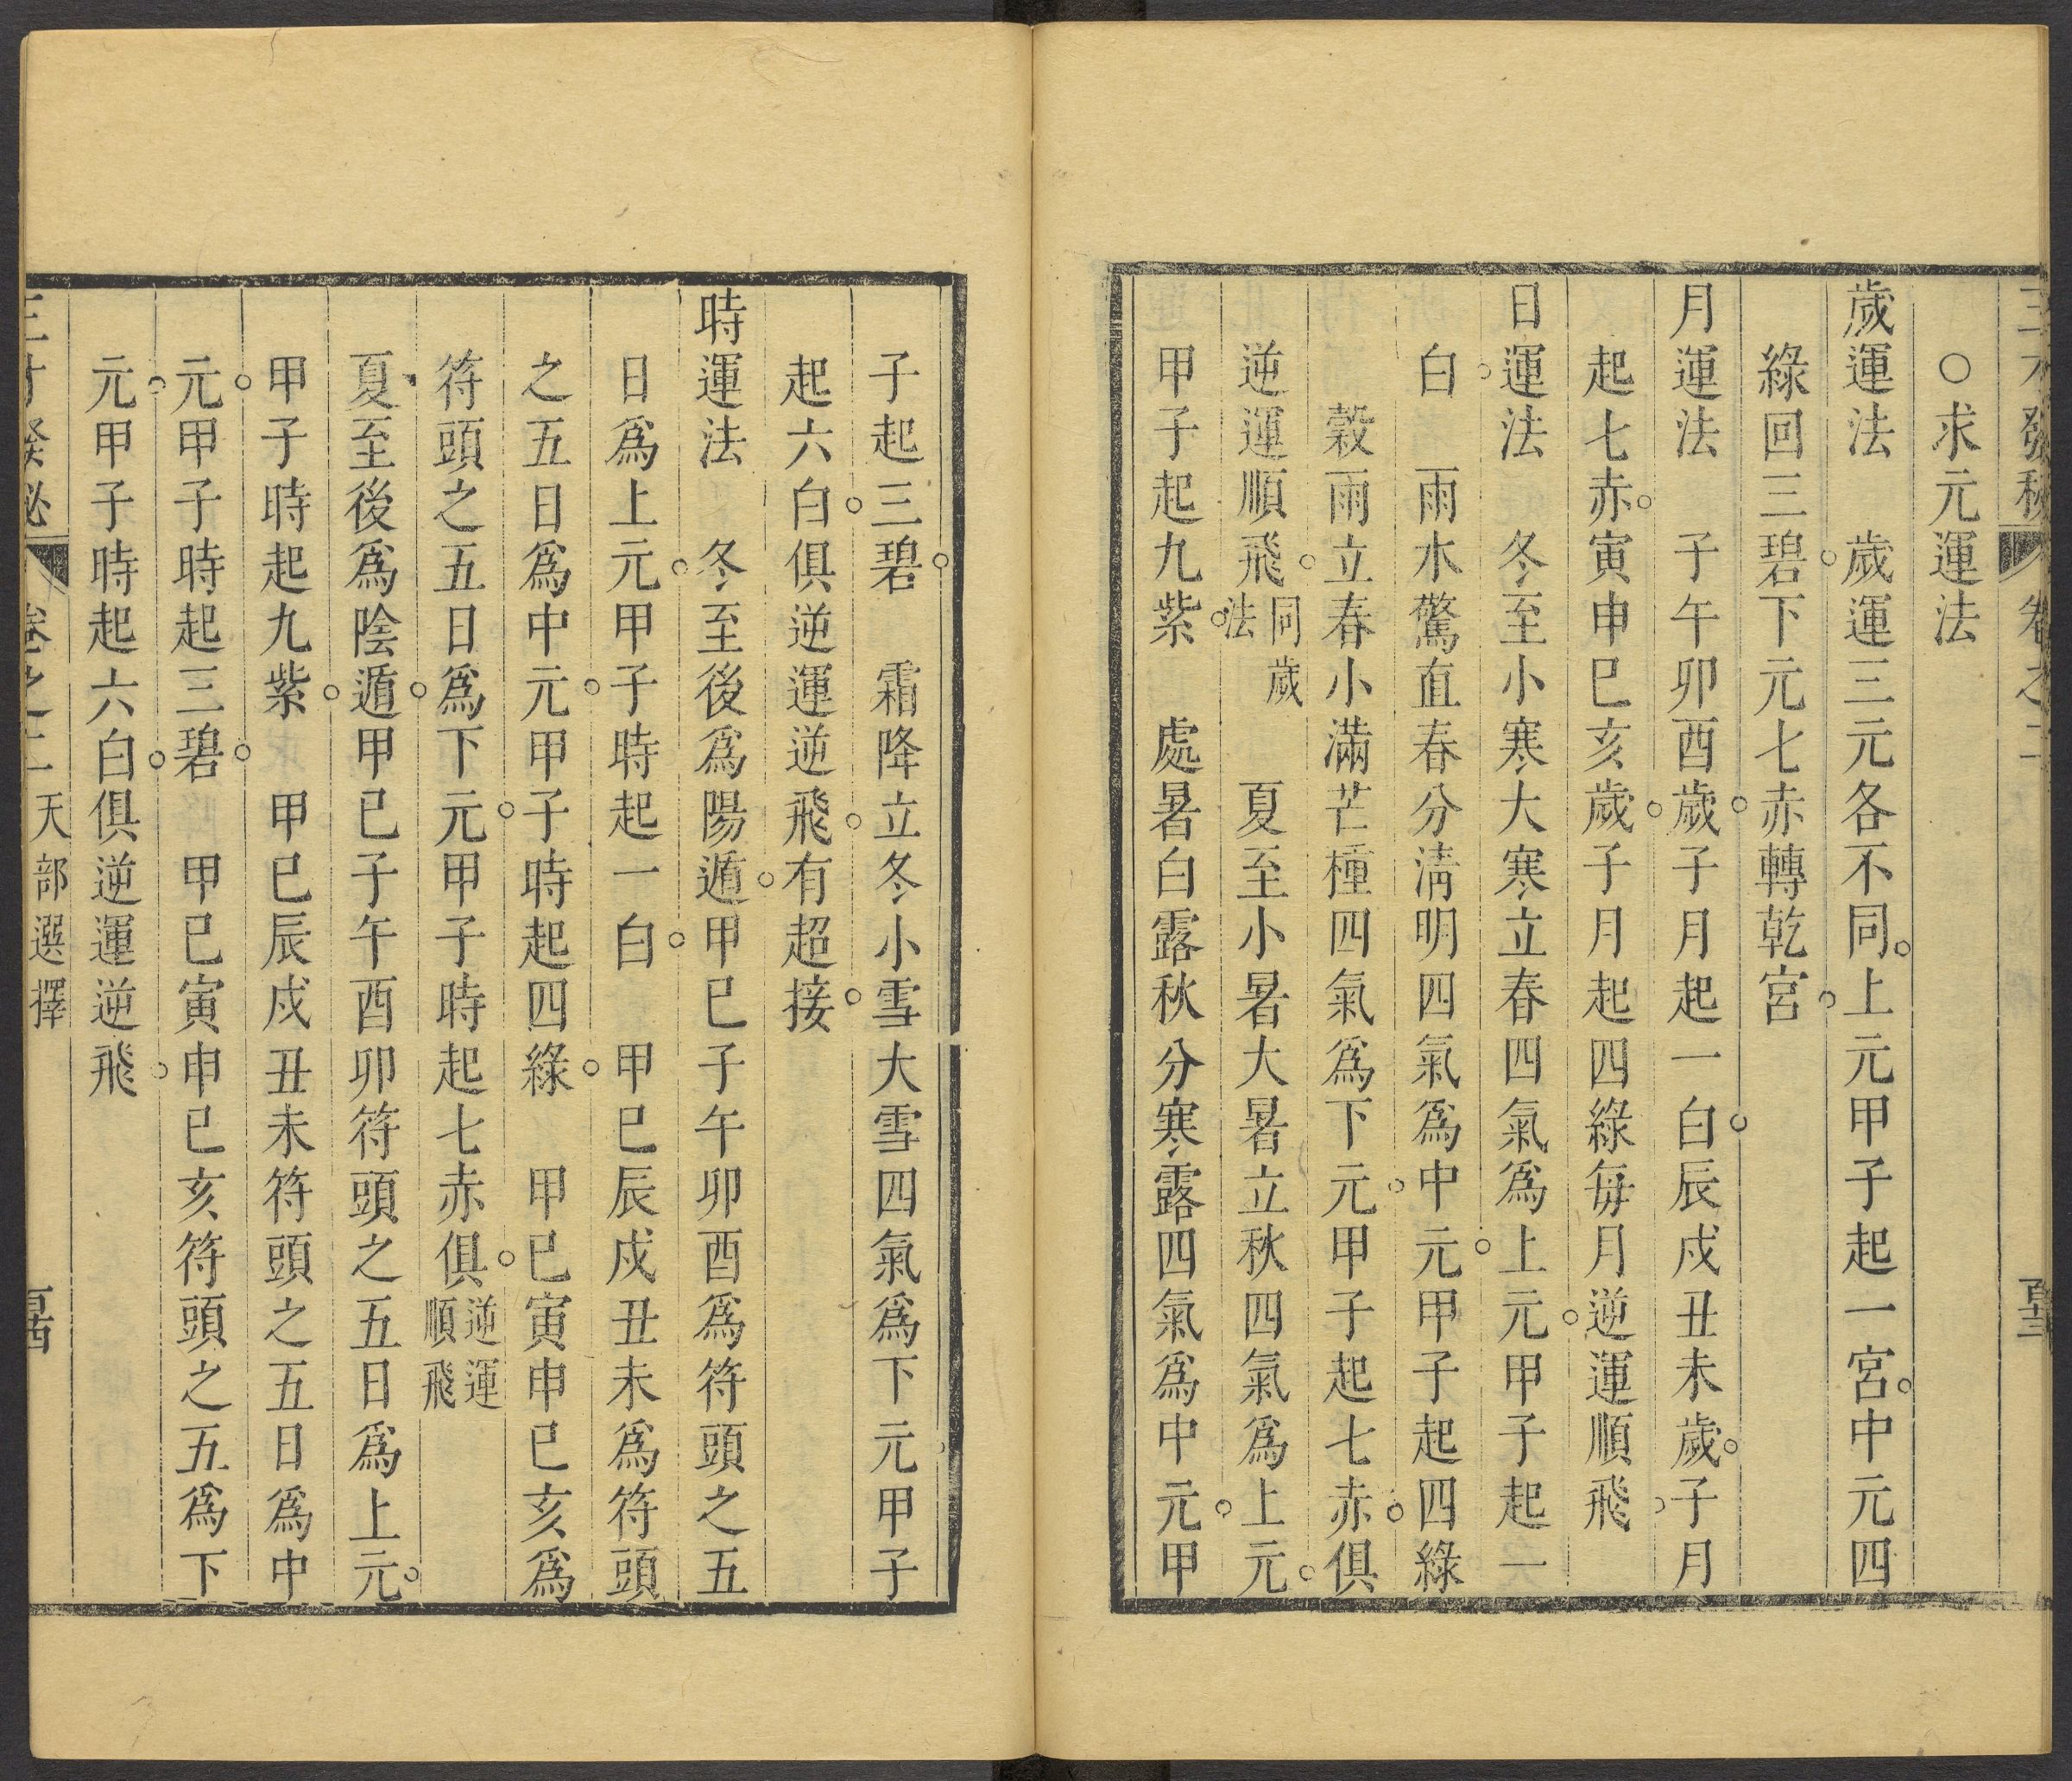 三才發秘 卷之二
○求元運法
歲運法 歲運三元各不同。上元甲子起一宮。中元四
綠回三碧。下元七赤轉乾宮。
月運法 子午卯酉歲。子月起一白。辰戌丑未歲。子月
起七赤。寅申巳亥歲。子月起四綠每月逆運順飛。
日運法 冬至小寒大寒立春四氣爲上元。甲子起一
白。 雨水驚直春分淸明四氣爲中元。甲子起四綠
穀雨立春小滿芒種四氣爲下元。甲子起七赤。俱
逆運順飛。同歲法 夏至小暑大暑立秋四氣爲上元。
甲子起九紫。 處暑白露秋分寒露四氣爲中元。甲
子起三碧。 霜降立冬小雪大雪四氣爲下元甲子
起六白。俱逆運逆飛。有超接。
時運法 冬至後爲陽遁。甲巳子午卯酉爲符頭之五
日爲上元。甲子時起一白。 甲巳辰戌丑未爲符頭
之五日爲中元。甲子時起四綠。 甲巳寅申巳亥爲
符頭之五日爲下元。甲子時起七赤俱。逆運順飛
夏至後爲陰遁。甲巳子午酉卯符頭之五日爲上元。
甲子時起九紫。 甲巳辰戌丑未符頭之五日爲中
元。甲子時起三碧。 甲巳寅申巳亥符頭之五爲下
元。甲子時起六白。俱逆運逆飛。
三才發秘 卷之二 天部選擇